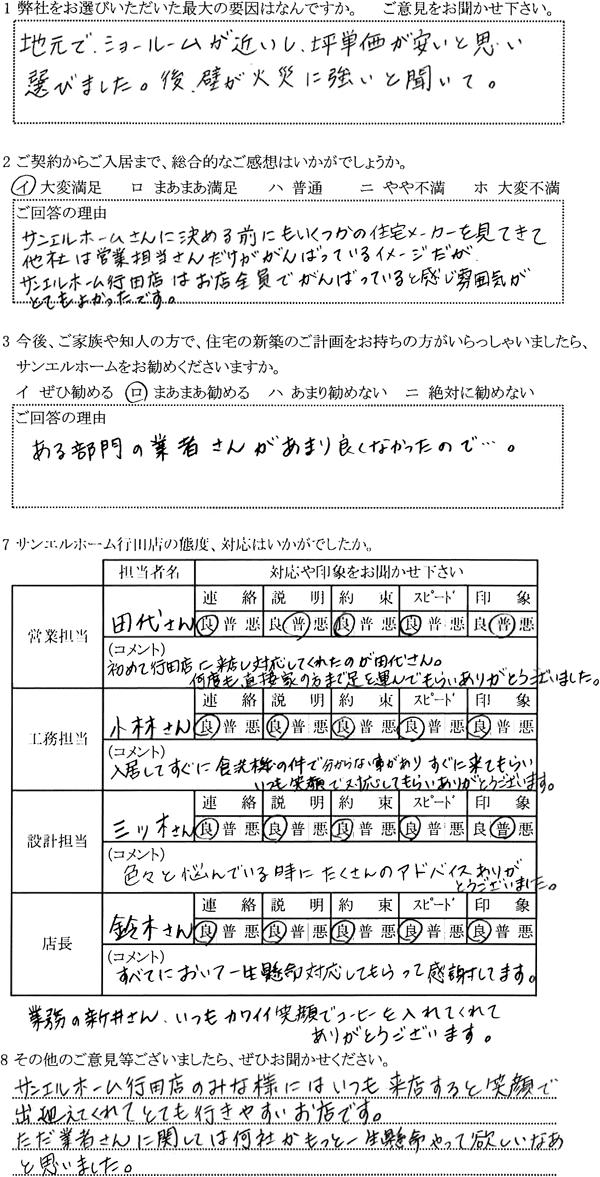 1 弊社をお選びいただいた最大の要因はなんですか。 ご意見をお聞かせ下さい。
地元で、ショールームが近いし、坪単価が安いと思い
選びました。後、壁が火災に強いと聞いて。
2 ご契約からご入居まで、総合的なご感想はいかがでしょうか。
イ 大変満足 ロ まあまあ満足 ハ 普通 ニ やや不満 ホ 大変不満
ご回答の理由
サンエルホームさんに決める前にもいくつかの住宅メーカーを見てきて
他社は営業担当さんだけががんばっているイメージだが
サンエルホーム行田店はお店全員でがんばっていると感じ雰囲気が
とてもよかったです。
3 今後、ご家族や知人の方で、住宅の新築のご計画をお持ちの方がいらっしゃいましたら、
サンエルホームをお勧めくださいますか。
イ ぜひ勧める ロ まあまあ勧める ハ あまり勧めない ニ 絶対に勧めない
ご回答の理由
ある部門の業者さんがあまり良くなかったので…。
7 サンエルホーム行田店の態度、対応はいかがでしたか。
担当者名 対応や印象をお聞かせ下さい
営業担当 田代さん
連絡 説明 約束 スピード 印象
良 普 悪 良 普 悪 良 普 悪 良 普 悪 良 普 悪
(コメント)
初めて行田店に来店し対応してくれたのが田代さん。
何度も直接家の方まで足を運んでもらいありがとうございました。
工務担当 小林さん
連絡 説明 約束 スピード 印象
良 普 悪 良 普 悪 良 普 悪 良 普 悪 良 普 悪
(コメント)
入居してすぐに食洗機の件で分からない事がありすぐに来てもらい
いつも笑顔で対応してもらいありがとうございます。
設計担当 三ッ木さん
連絡 説明 約束 スピード 印象
良 普 悪 良 普 悪 良 普 悪 良 普 悪 良 普 悪
(コメント)
色々と悩んでいる時にたくさんのアドバイスありが
とうございました。
店長 鈴木さん
連絡 説明 約束 スピード 印象
良 普 悪 良 普 悪 良 普 悪 良 普 悪 良 普 悪
(コメント)
すべてにおいて一生懸命対応してもらって感謝してます。
業務の新井さん、いつもカワイイ笑顔でコーヒーを入れてくれて
ありがとうございます。
8 その他のご意見等ございましたら、ぜひお聞かせください。
サンエルホーム行田店のみな様にはいつも来店すると笑顔で
出迎えてくれてとても行きやすいお店です。
ただ業者さんに関しては何社かもっと一生懸命やって欲しいなあ
と思いました。